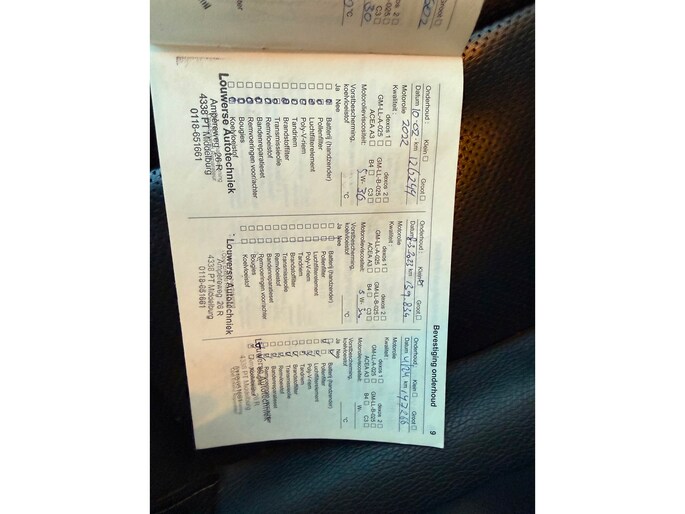 Bevestiging onderhoud 9
Onderhoud: Klein Groot
Datum 10-02- km 126244
2022
Motorolie
Kwaliteit:
dexos 1 dexos 2
GM-LL-A-025 GM-LL-B-025
ACEA A3 B4 C3
Motorolieviscositeit: 5 W- 30
Vorstbescherming,
koelvloeistof °C
Ja Nee
Batterij (handzender)
Pollenfilter
Luchtfilterelement
Poly-V-riem
Tandriem
Brandstoffilter
Transmissieolie
Remvloeistof
Bandenreparatieset
Remvoeringen voor/achter
Bougies
Koelvloeistof
Louwerse Autotechniek
Ampèreweg 26 R
4338 PT Middelburg
0118-651661
Onderhoud: Klein Groot
Datum km 139.834
Motorolie
Kwaliteit:
dexos 1 dexos 2
GM-LL-A-025 GM-LL-B-025
ACEA A3 B4 C3
Motorolieviscositeit: 5 W- 30
Vorstbescherming,
koelvloeistof °C
Ja Nee
Batterij (handzender)
Pollenfilter
Luchtfilterelement
Poly-V-riem
Tandriem
Brandstoffilter
Transmissieolie
Remvloeistof
Bandenreparatieset
Remvoeringen voor/achter
Bougies
Koelvloeistof
Louwerse Autotechniek
Ampèreweg 26 R
4338 PT Middelburg
0118-651661
Onderhoud: Klein Groot
Datum 4/24 km 147266
Motorolie
Kwaliteit:
dexos 1 dexos 2
GM-LL-A-025 GM-LL-B-025
ACEA A3 B4 C3
Motorolieviscositeit: W-
Vorstbescherming,
koelvloeistof °C
Ja Nee
Batterij (handzender)
Pollenfilter
Luchtfilterelement
Poly-V-riem
Tandriem
Brandstoffilter
Transmissieolie
Remvloeistof
Bandenreparatieset